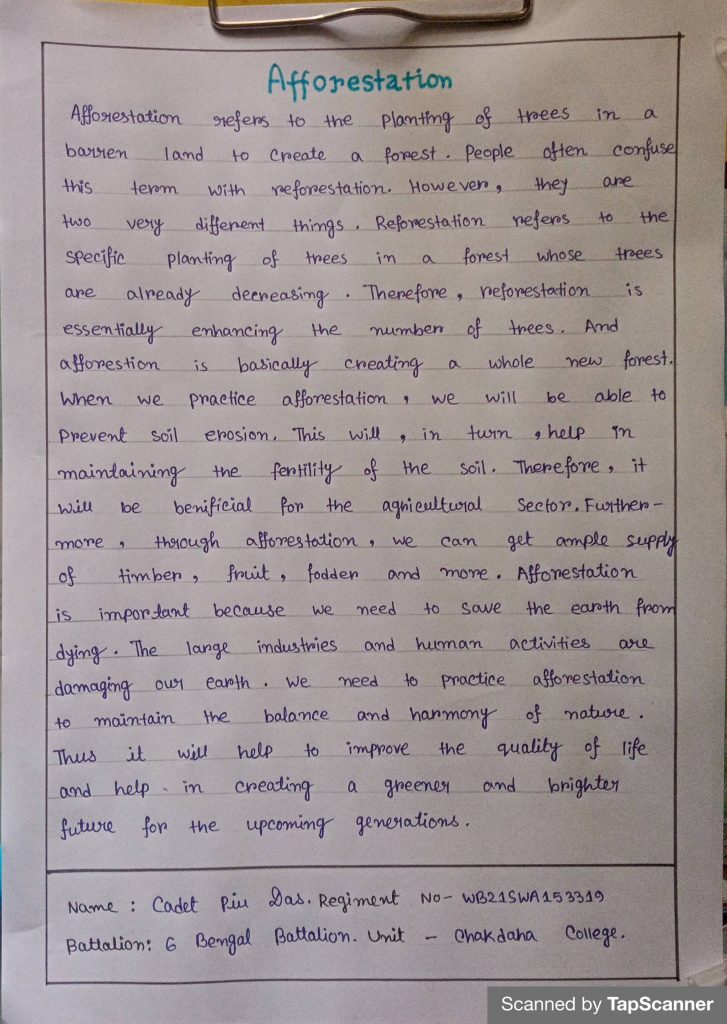 Afforestation
Afforestation refers to the planting of trees in a
barren land to create a forest. People often confuse
this term with reforestation. However, they are
two very different things. Reforestation refers to the
specific planting of trees in a forest whose trees
are already decreasing. Therefore, reforestation is
essentially enhancing the number of trees. And
afforestion is basically creating a whole new forest.
When we practice afforestation, we will be able to
prevent soil erosion. This will, in turn, help in
maintaining the fertility of the soil. Therefore, it
will be benificial for the agricultural sector. Further-
more, through afforestation, we can get ample supply
of timber, fruit, fodder and more. Afforestation
is important because we need to save the earth from
dying. The large industries and human activities are
damaging our earth. We need to practice afforestation
to maintain the balance and harmony of nature.
Thus it will help to improve the quality of life
and help in creating a greener and brighter
future for the upcoming generations.
Name: Cadet Piu Das. Regiment No- WB21SWA153319
Battalion: 6 Bengal Battalion. Unit - Chakdaha College.
Scanned by TapScanner